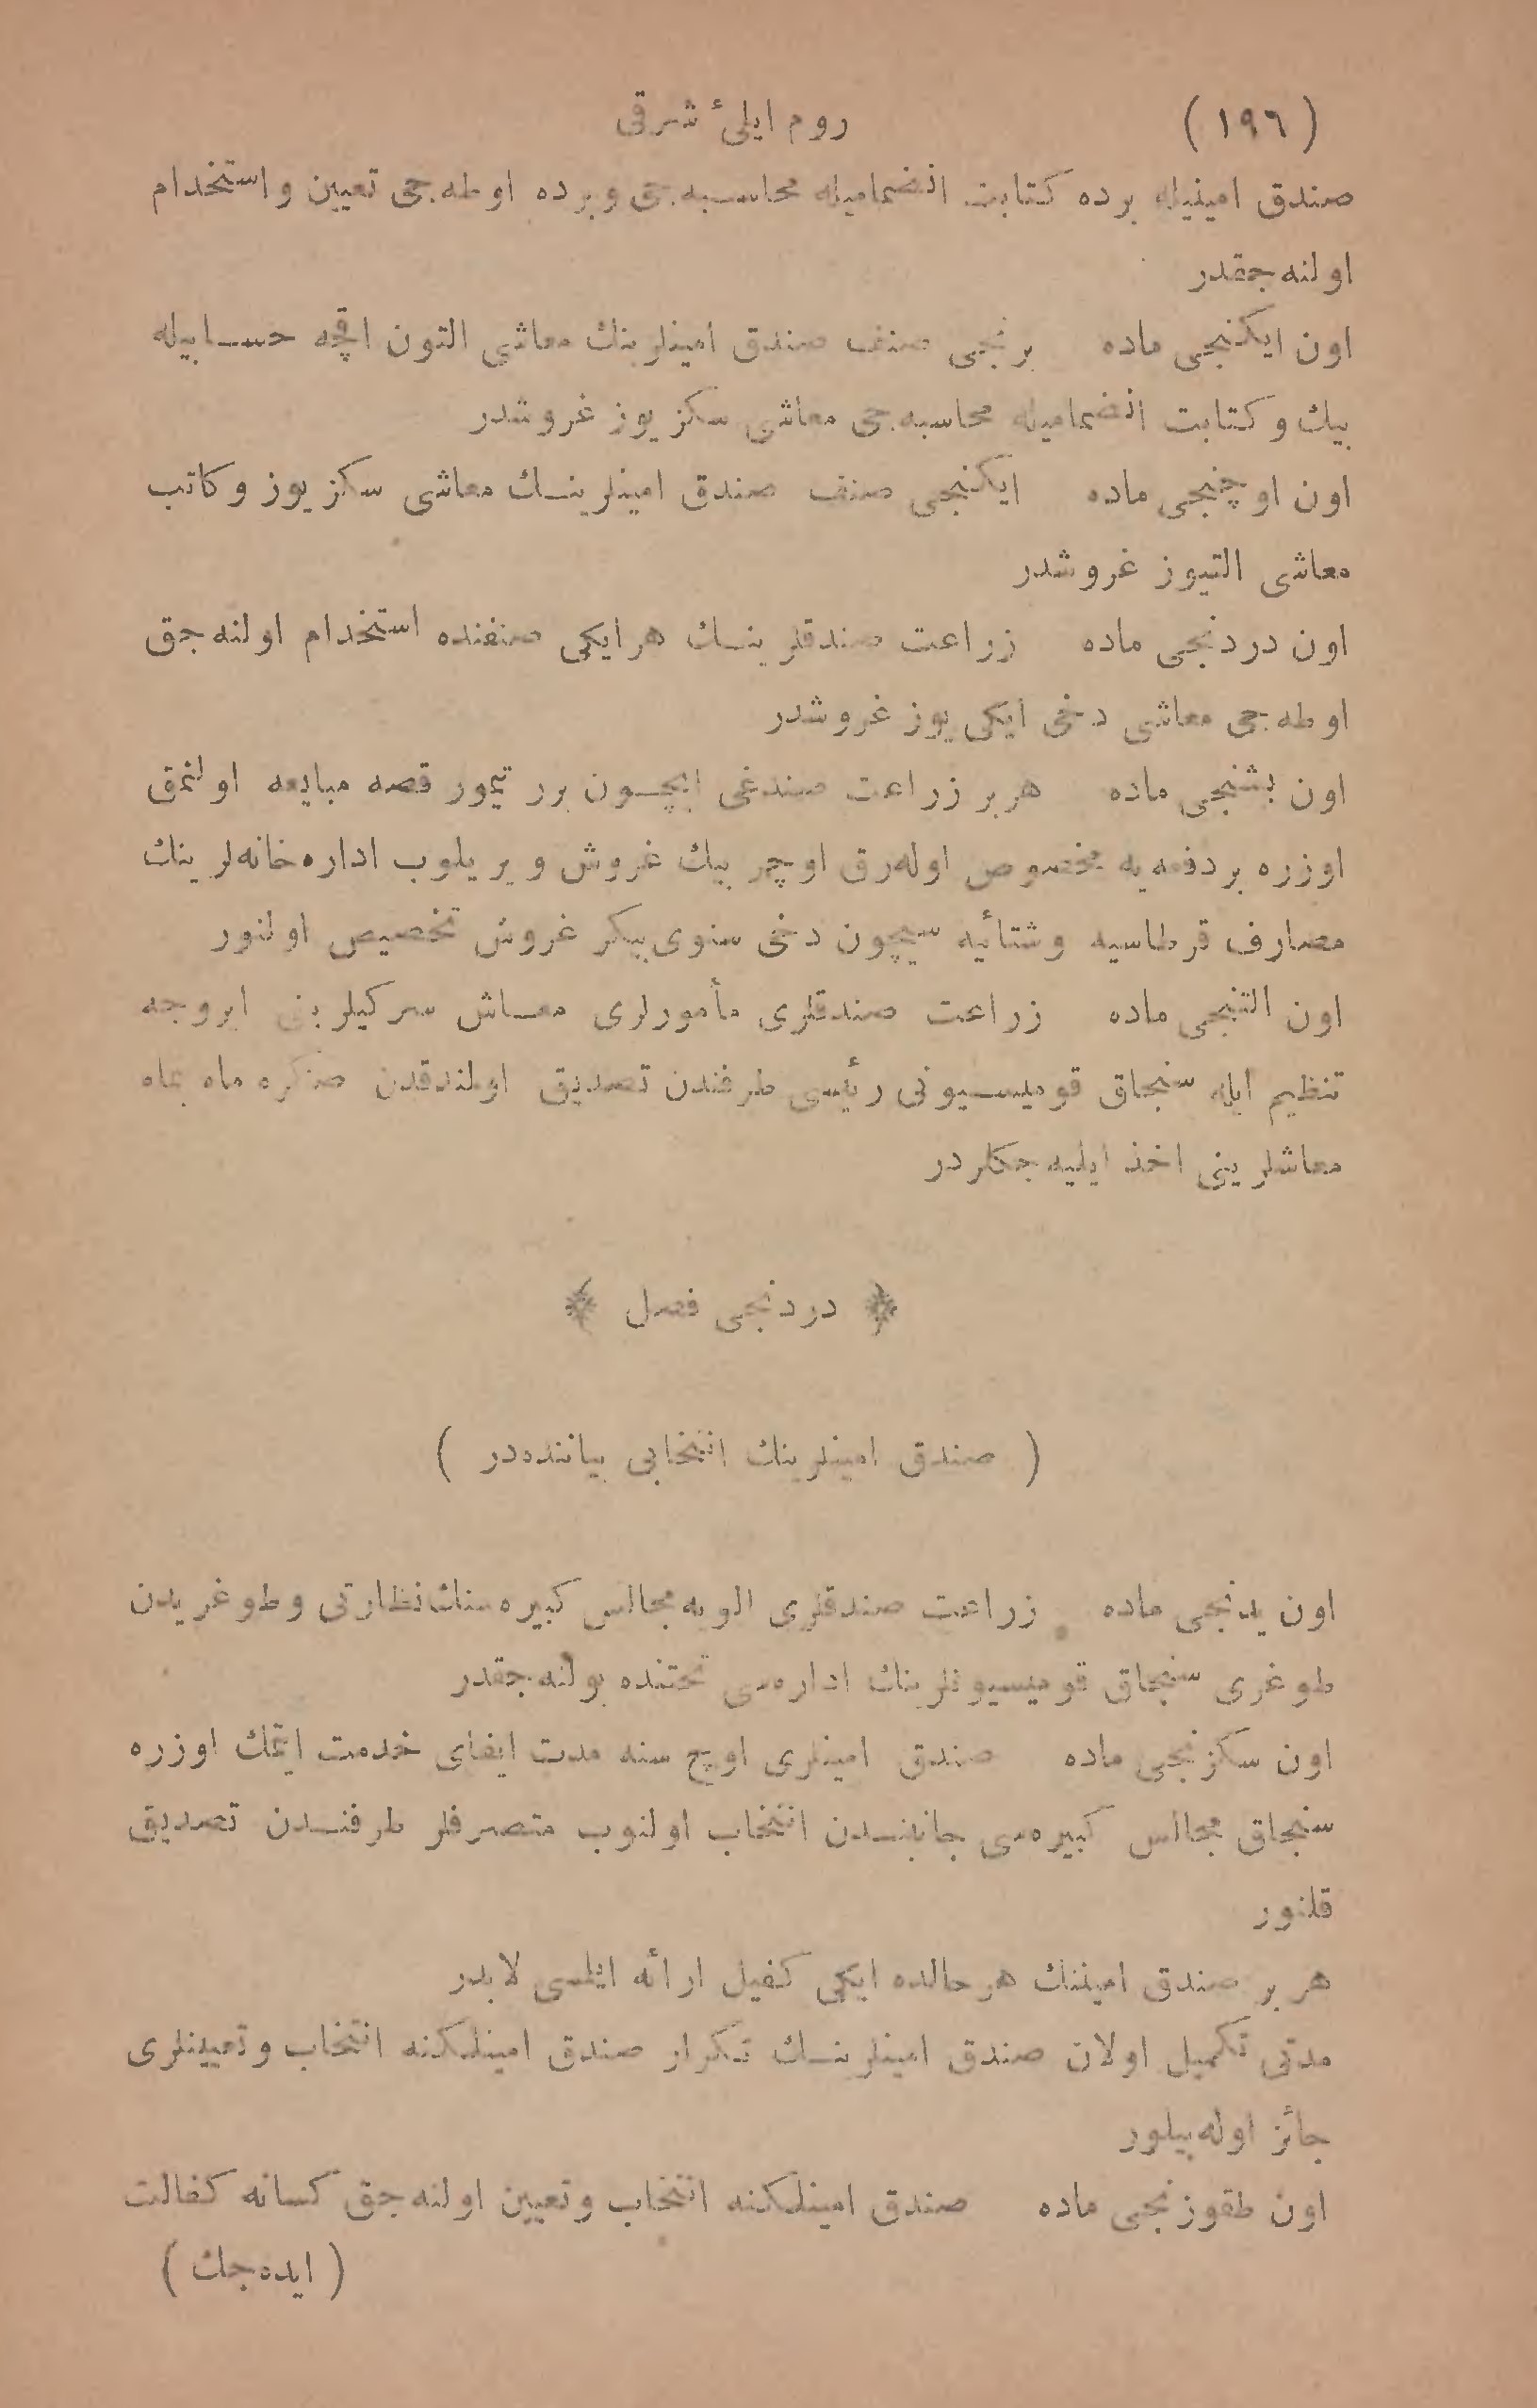 (١٩٦) روم ایلیٔ شرقی
صندق امینیله برده کتابت انضمامیله محاسبه‌جی وبرده اوطه‌جی تعیین واستخدام
اولنه‌جقدر
اون ایکنجی ماده برنجی صنف صندق امینلرینك معاشی التون اقچه حسابیله
بیك وکتابت انضمامیله محاسبه‌جی معاشی سکز یوز غروشدر
اون اوچنجی ماده ایکنجی صنف صندق امینلرینك معاشی سکز یوز وکاتب
معاشی التیوز غروشدر
اون دردنجی ماده زراعت صندقلرینك هر ایکی صنفنده استخدام اولنه‌جق
اوطه‌جی معاشی دخی ایکی یوز غروشدر
اون بشنجی ماده هر بر زراعت صندغی ایچون برر تیمور قصه مبایعه اولنمق
اوزره بر دفعه‌یه مخصوص اوله‌رق اوچر بیك غروش ویریلوب اداره‌خانه‌لرینك
مصارف قرطاسیه وشتائیه سیچون دخی سنوی بیکر غروش تخصیص اولنور
اون التنجی ماده زراعت صندقلری مأمورلری معاش سرکیلرینی ابروجه
تنظیم ایله سنجاق قومیسیونی رئیسی طرفندن تصدیق اولندقدن صنکره ماه بماه
معاشلرینی اخذ ایلیه‌جکلردر
﴿ دردنجی فصل ﴾
( صندق امینلرینك انتخابی بیاننده‌در )
اون یدنجی ماده زراعت صندقلری الویه مجالس کبیره‌سنك نظارتی وطوغریدن
طوغری سنجاق قومیسیونلرینك اداره‌سی تحتنده بولنه‌جقدر
اون سکزنجی ماده صندق امینلری اوچ سنه مدت ایفای خدمت ایتمك اوزره
سنجاق مجالس کبیره‌سی جانبندن انتخاب اولنوب متصرفلر طرفندن تصدیق
قلنور
هر بر صندق امیننك هر حالده ایکی کفیل ارائه ایلمسی لابددر
مدتی تکمیل اولان صندق امینلرینك تکرار صندق امینلکنه انتخاب وتعیینلری
جائز اوله‌بیلور
اون طقوزنجی ماده صندق امینلکنه انتخاب وتعیین اولنه‌جق کسانه کفالت
( ایده‌جك )